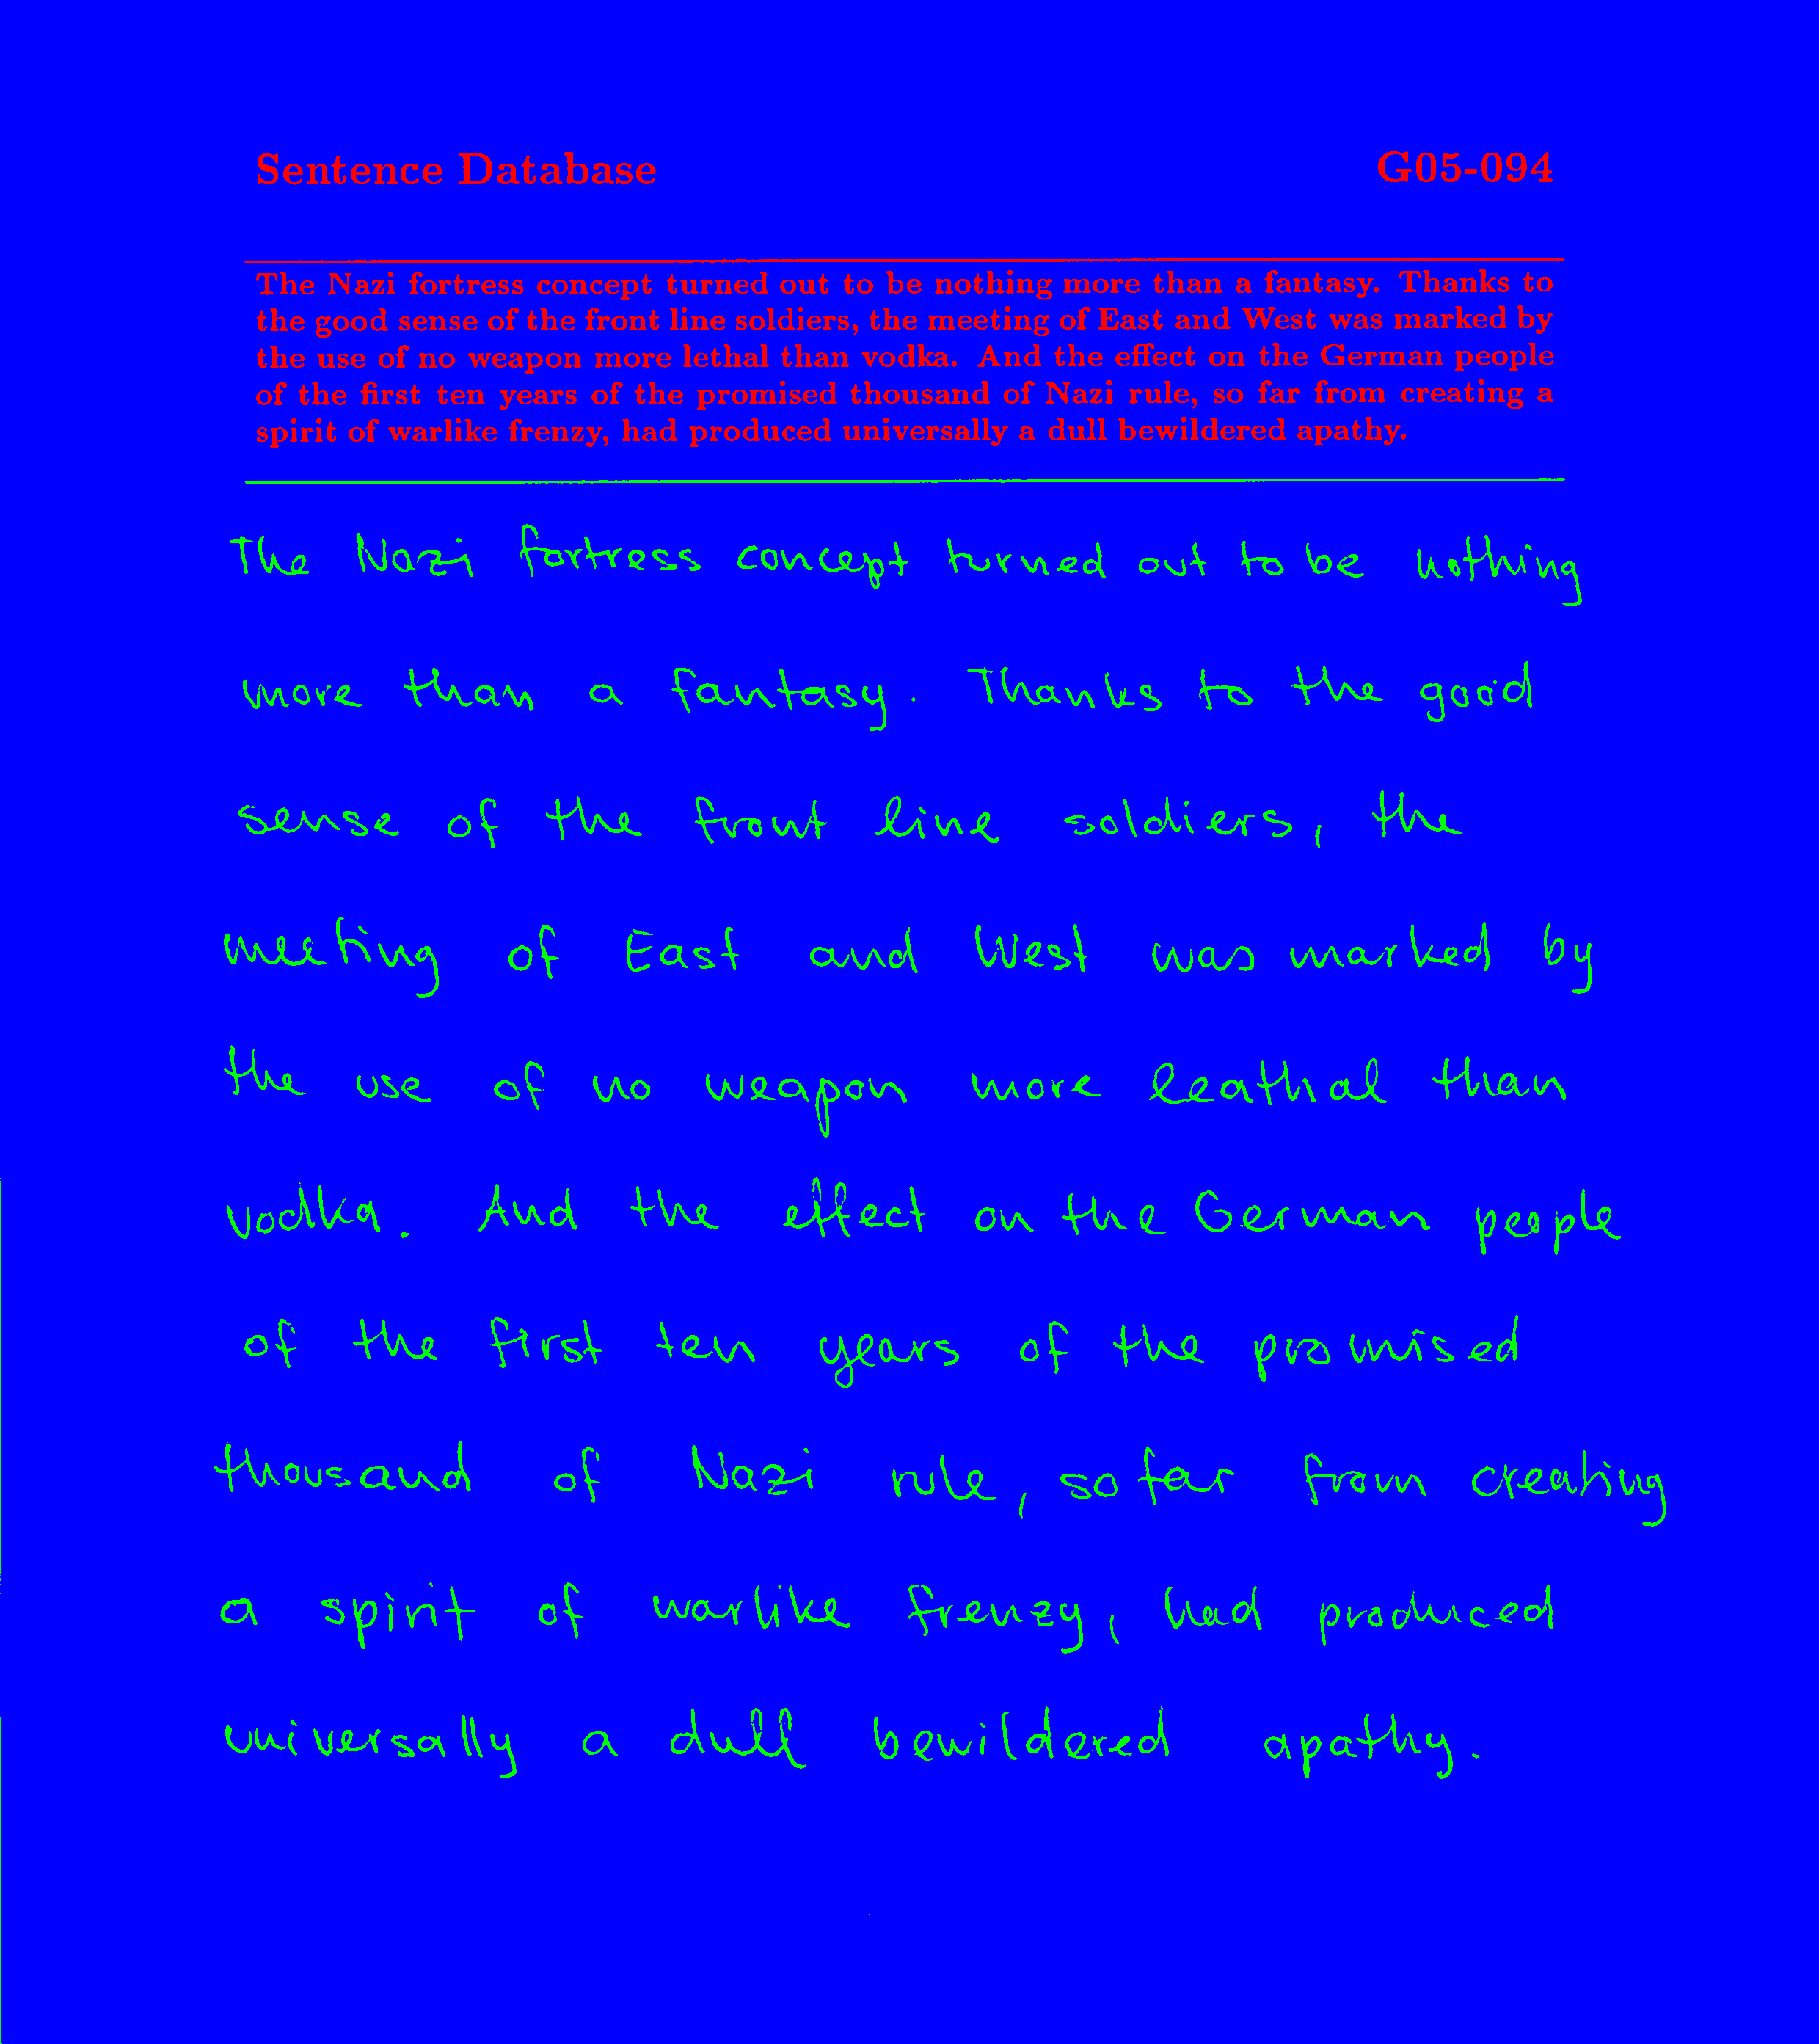 Sentence Database G05-094
The Nazi fortress concept turned out to be nothing more than a fantasy. Thanks to
the good sense of the front line soldiers, the meeting of East and West was marked by
the use of no weapon more lethal than vodka. And the effect on the German people
of the first ten years of the promised thousand of Nazi rule, so far from creating a
spirit of warlike frenzy, had produced universally a dull bewildered apathy.
The Nazi fortress concept turned out to be nothing
more than a fantasy. Thanks to the good
sense of the front line soldiers, the
meeting of East and West was marked by
the use of no weapon more leathal than
vodka. And the effect on the German people
of the first ten years of the promised
thousand of Nazi rule, so far from creating
a spirit of warlike frenzy, had produced
universally a dull bewildered apathy.